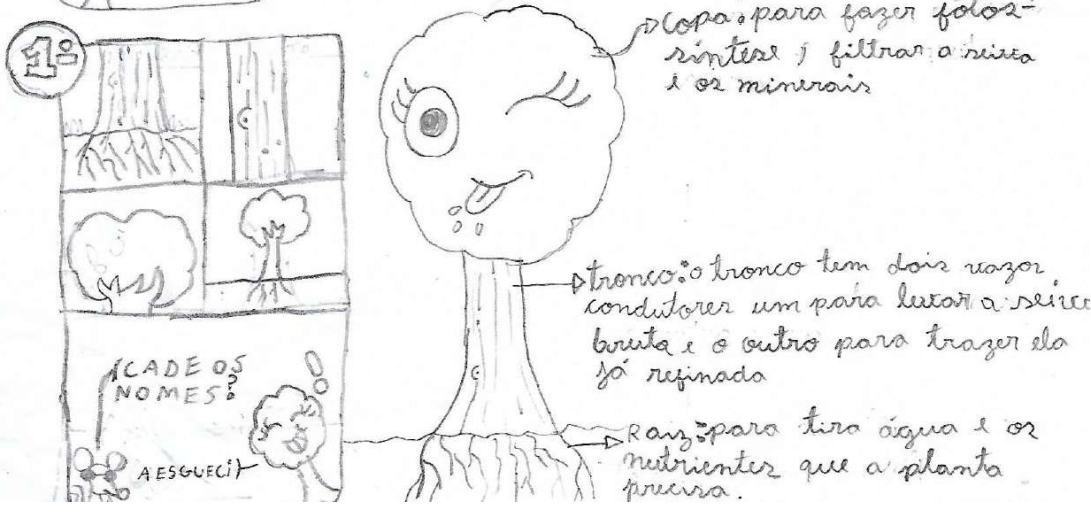 1º
Copa: para fazer fotos-
síntese; filtrar a seiva
e os minerais
tronco: o tronco tem dois vazos
condutores um para levar a seiva
bruta e o outro para trazer ela
já refinada
Raiz: para tira água e os
nutrientes que a planta
precisa.
CADE OS
NOMES?
A ESQUECI